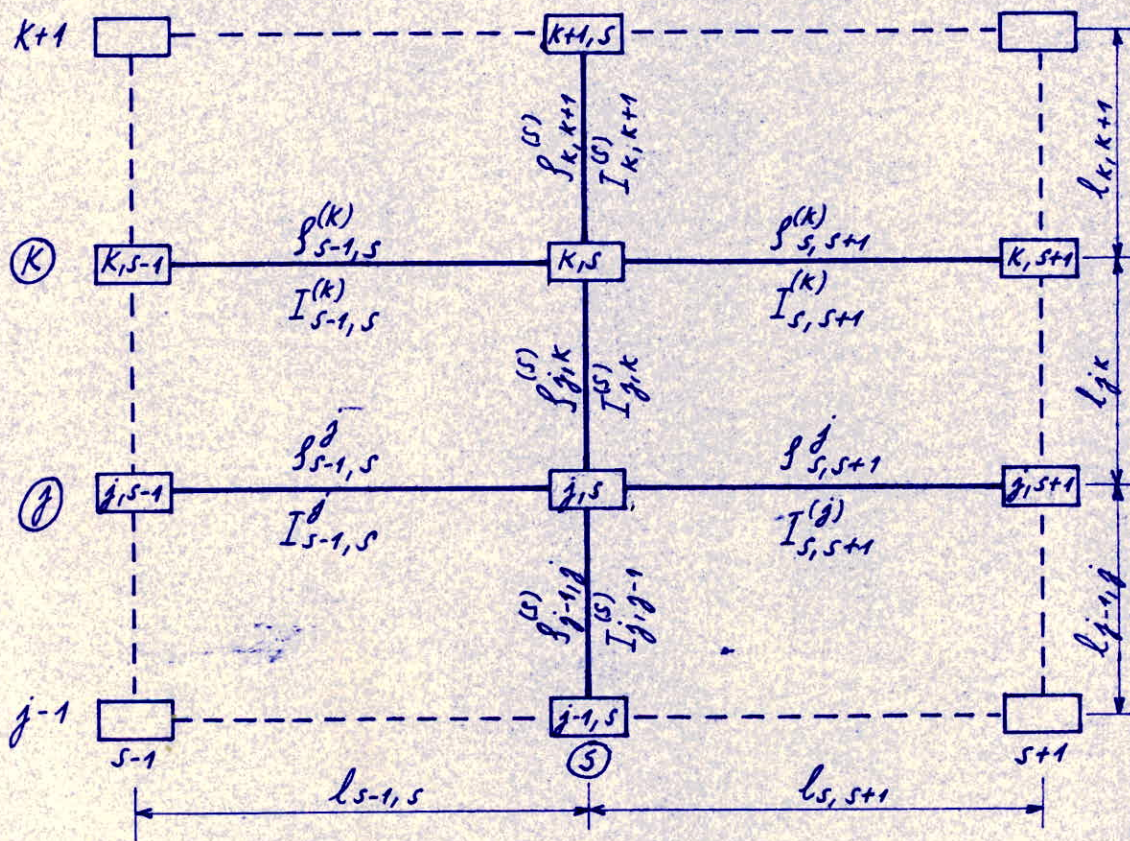 k+1
k+1, s
ρ^(s)_k,k+1
I^(s)_k,k+1
l_k,k+1
ρ^(k)_s-1,s
ρ^(k)_s,s+1
Ⓚ
k,s-1
k,s
k,s+1
I^(k)_s-1,s
I^(k)_s,s+1
ρ^(s)_j,k
I^(s)_j,k
l_jk
ρ^j_s-1,s
ρ^j_s,s+1
ⓙ
j,s-1
j,s
j,s+1
I^j_s-1,s
I^(j)_s,s+1
ρ^(s)_j-1,j
I^(s)_j,j-1
l_j-1,j
j-1
j-1,s
s-1
Ⓢ
s+1
l_s-1,s
l_s,s+1